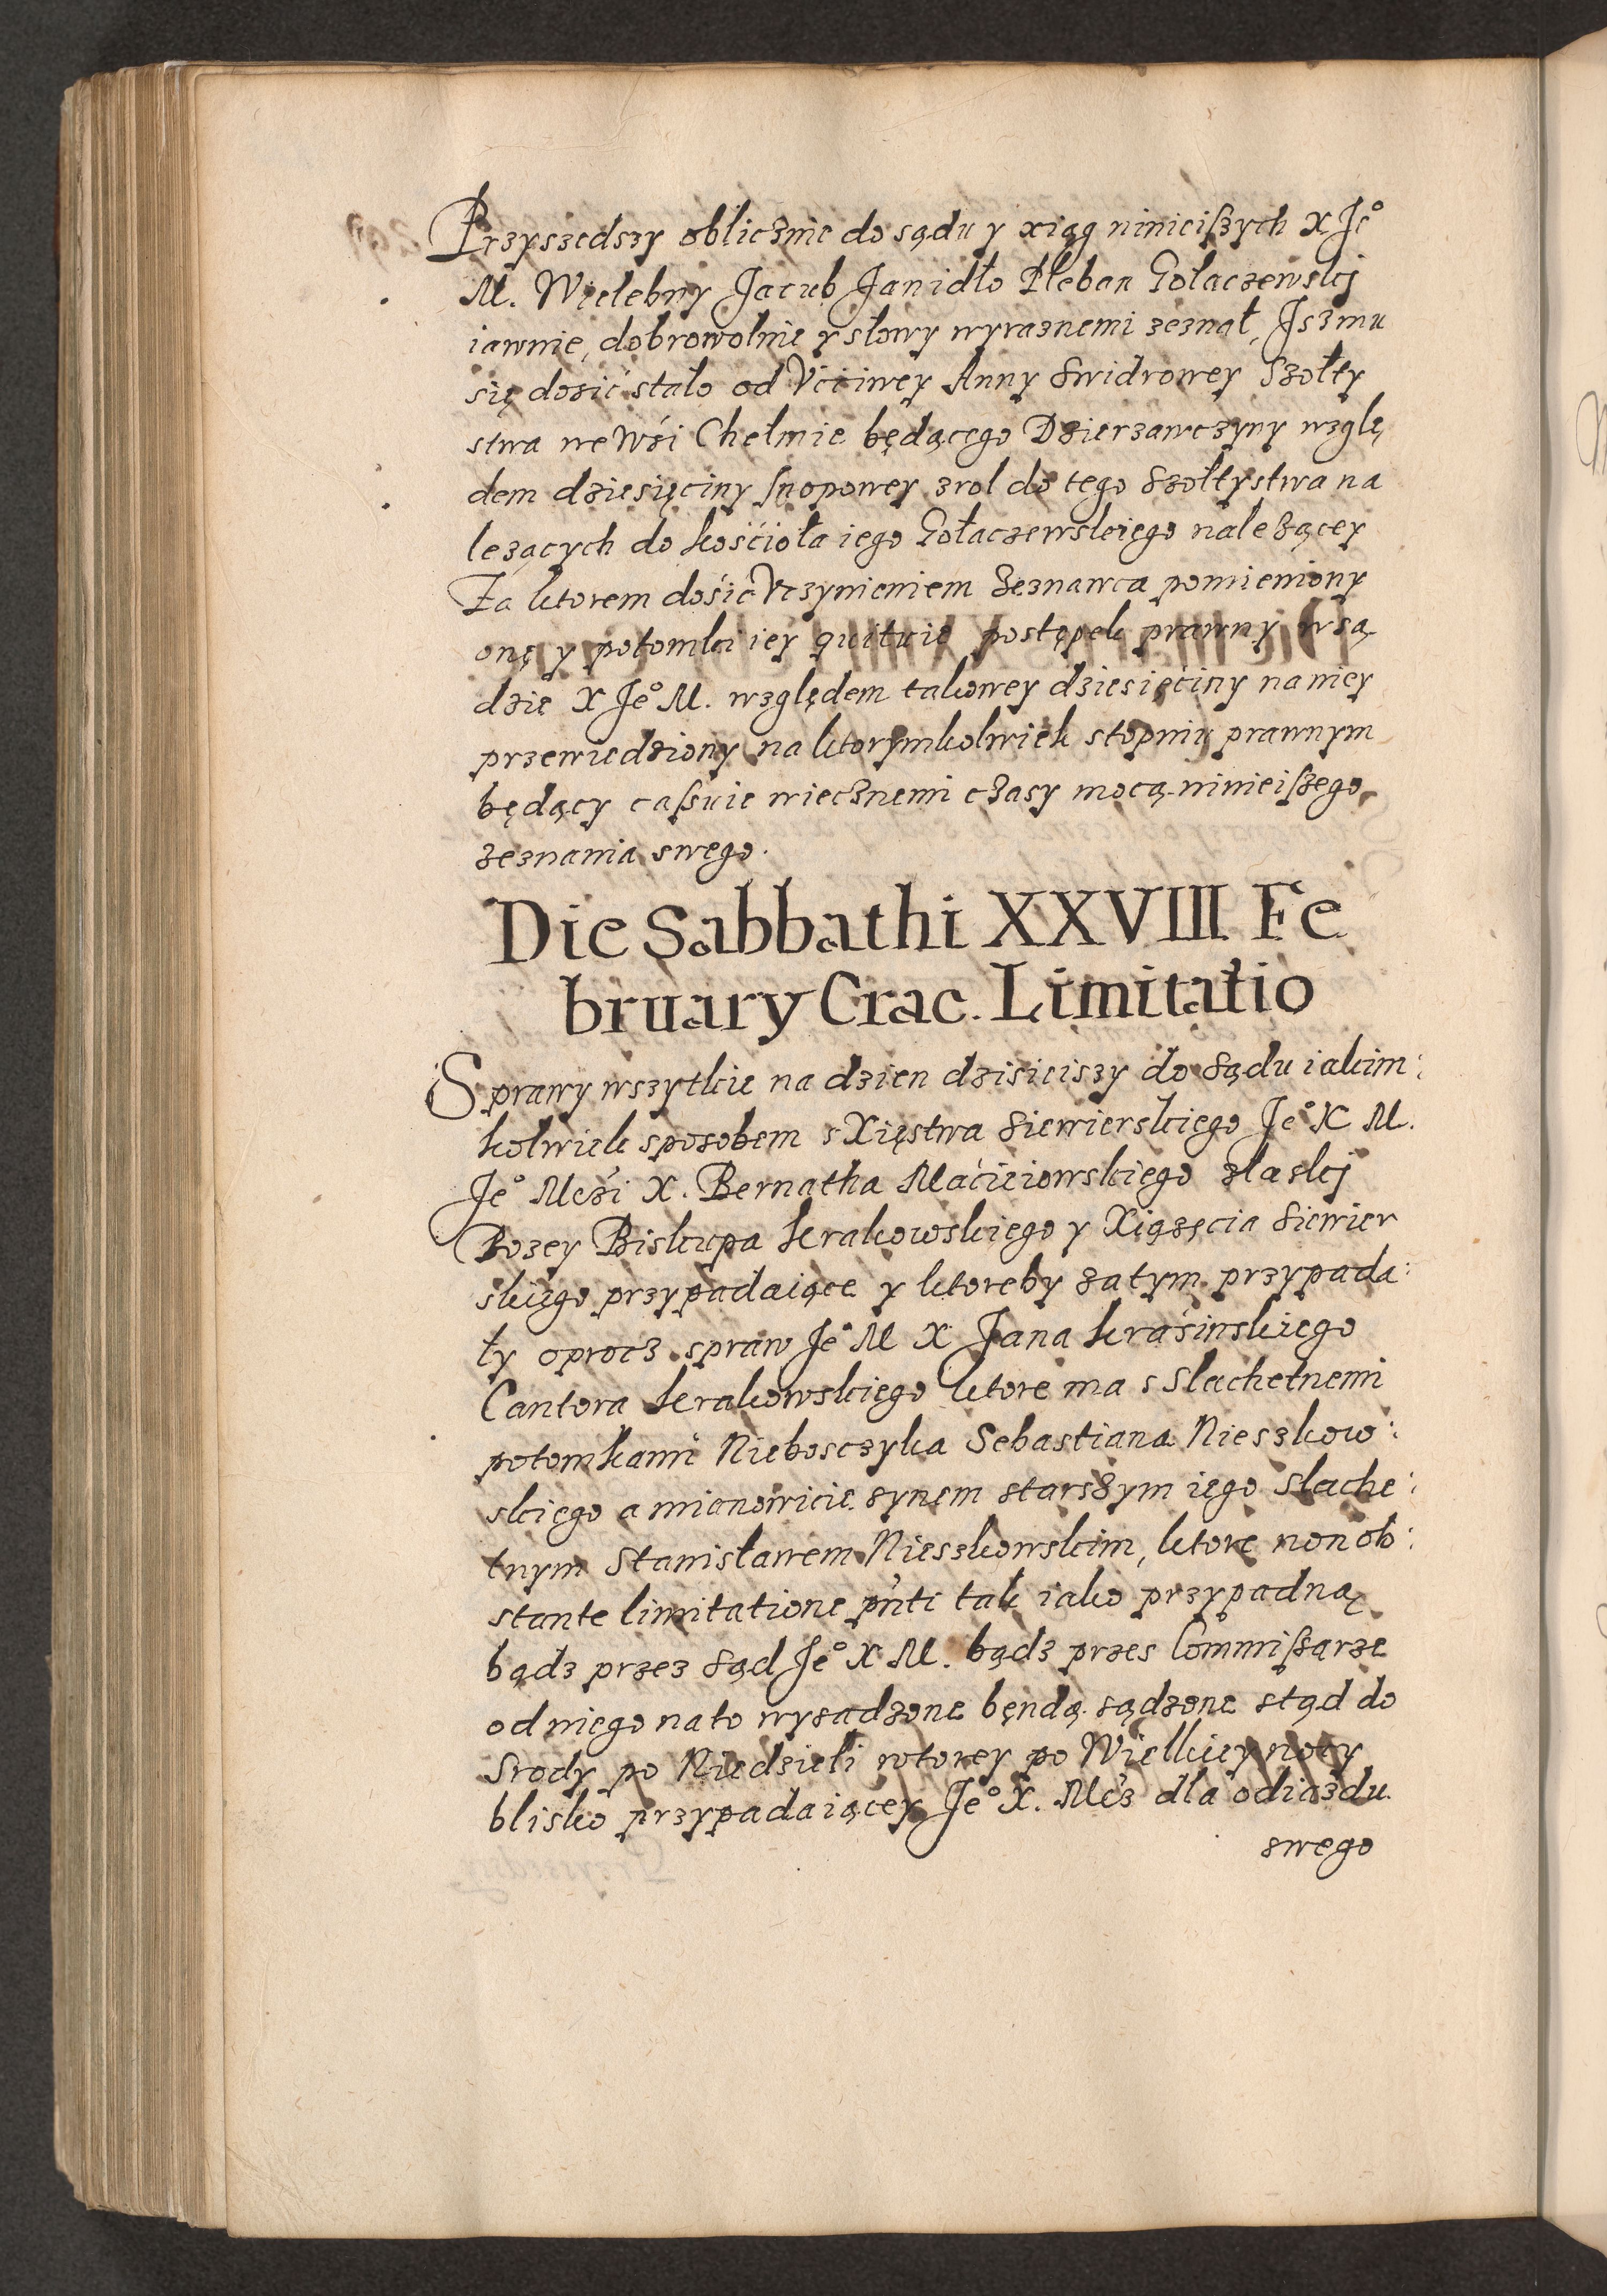 Przyszedszy oblicznie do sądu y xiąg ninieiszych X Je°
M. Wielebny Jacub Janidło Pleban Gołaczewskj
iawnie, dobrowolnie y słowy wyraznemi zeznał, Jsz mu
się dosić stało od Vcciwey Anny Swidrowey Szołty
stwa we Wsi Chełmie będącego Dzierzawczyny wzglę
dem dziesięciny snopowey z rol do tego Szołtystwa na
lezących do kościoła iego Gołaczewskiego nalezącey
Za ktorem dosić Vczynieniem Zeznawca pomieniony
onę y potomki iey quituie postępek prawny w są
dzie X Je° M. względem takowey dziesięciny na niey
przewiedziony na ktorymkolwiek stopniu prawnym
będący cassuie wiecznemi czasy mocą ninieiszego
zeznania swego.
Die Sabbathi XXVIII Fe
bruary Crac. Limitatio
Sprawy wszytkie na dzien dzisieiszy do sądu iakim:
kolwiek sposobem s Xięstwa Siewierskiego Je° X M.
Je° Mczi X. Bernatha Macieiowskiego z łaskj
Bozey Biskupa Krakowskiego y Xiązęcia Siewier
skiego przypadaiące y ktoreby zatym przypada:
ły oprocz spraw Je° M X Jana Krasinskiego
Cantora Krakowskiego ktore ma s Slachetnemi
potomkami Nieboszczyka Sebastiana Nieszkow:
skiego a mianowicie synem starszym iego Slache:
tnym Stanisławem Nieszkowskim, ktore non ob:
stante limitatione pnti tak iako przypadną
bądz przez sąd Je° X M. bądz przes Commissarze
od niego na to wysadzone będą sądzone stąd do
Srody po Niedzieli wtorey po Wielkieynocy
blisko przypadaiącey Je° X. Mcz dla odiazdu
swego